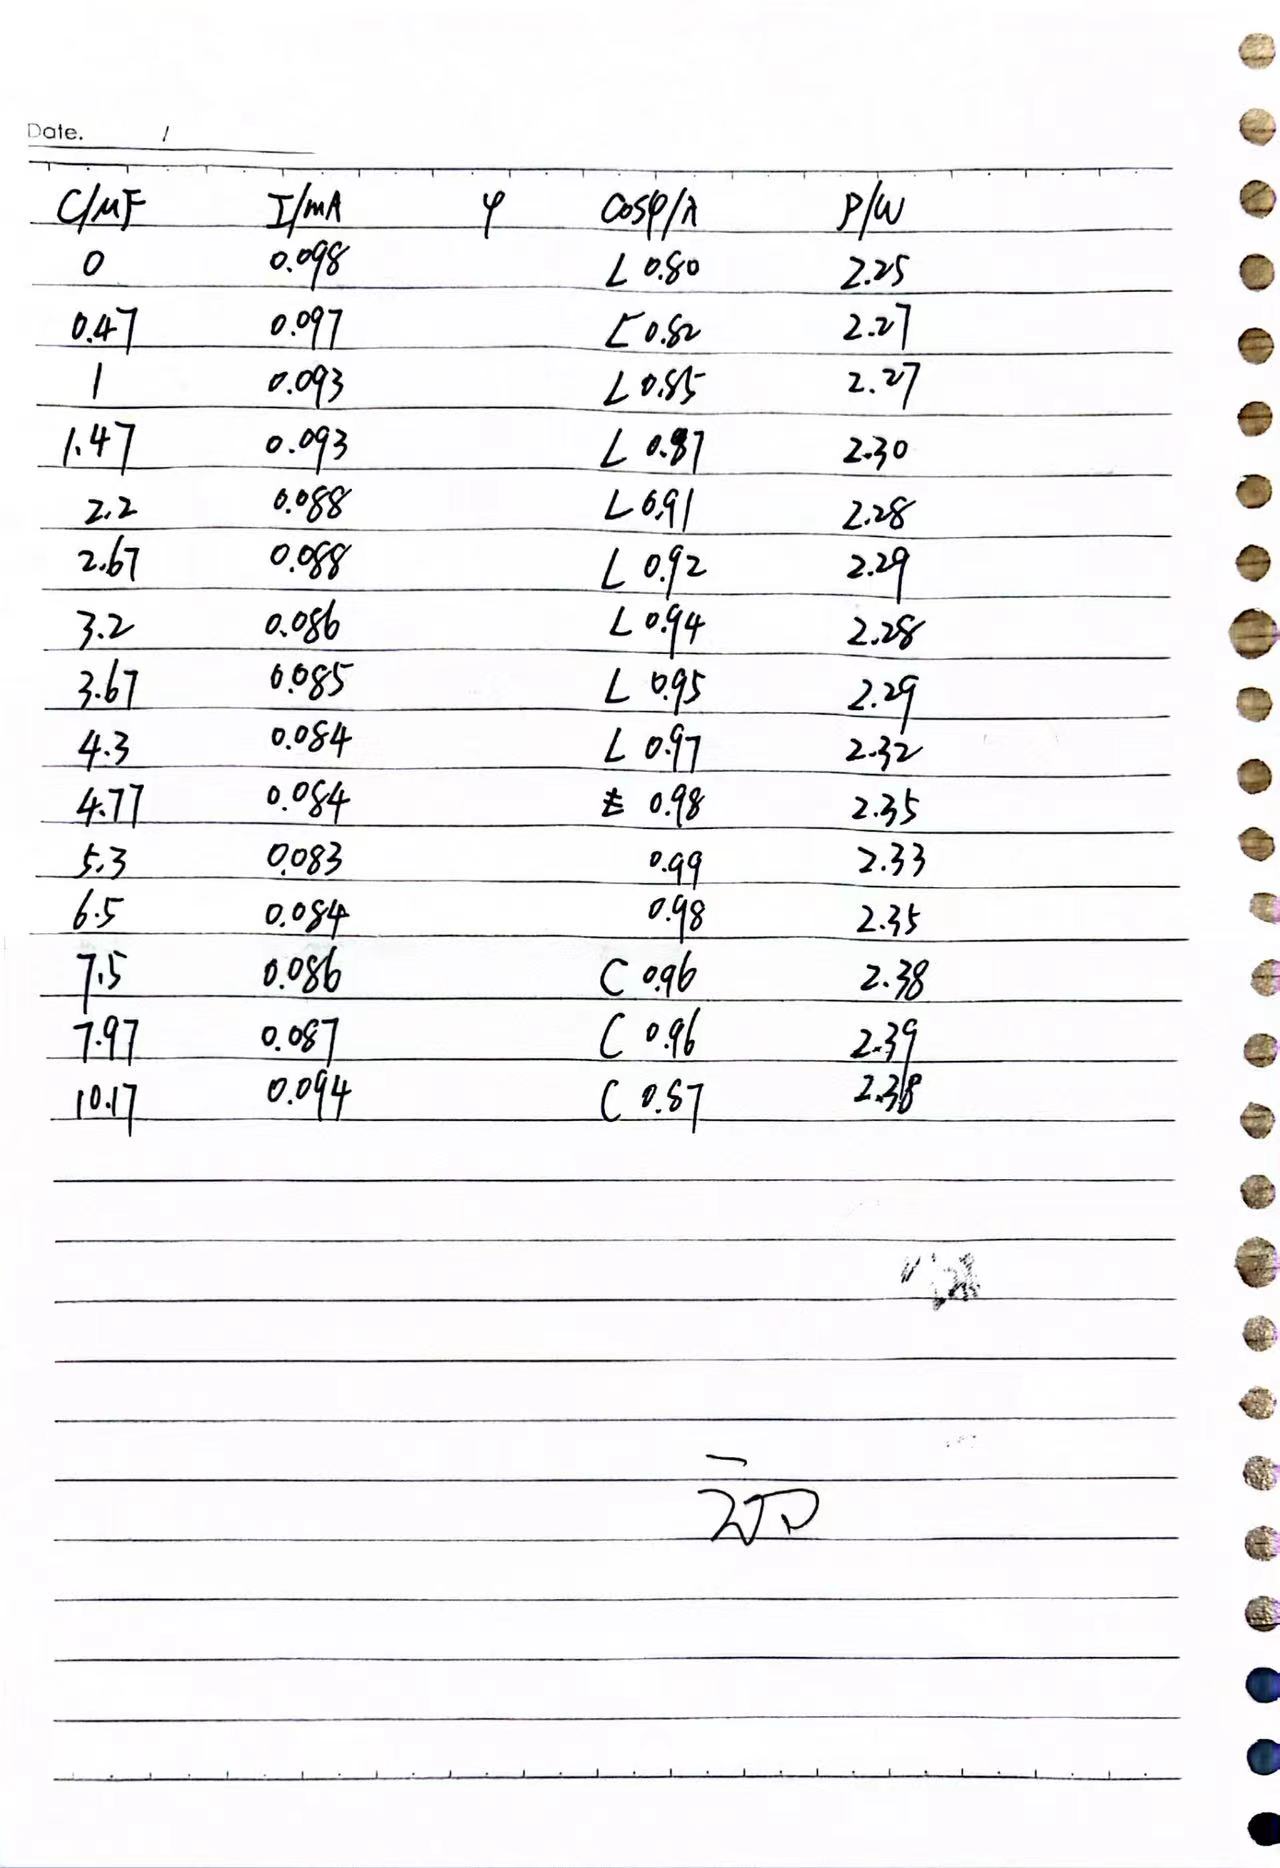 Date. /
C/μF I/mA φ cosφ/λ P/W
0 0.098 L 0.80 2.25
0.47 0.097 L 0.82 2.27
1 0.093 L 0.85 2.27
1.47 0.093 L 0.87 2.30
2.2 0.088 L 0.91 2.28
2.67 0.088 L 0.92 2.29
3.2 0.086 L 0.94 2.28
3.67 0.085 L 0.95 2.29
4.3 0.084 L 0.97 2.32
4.77 0.084 0.98 2.35
5.3 0.083 0.99 2.33
6.5 0.084 0.98 2.35
7.5 0.086 C 0.96 2.38
7.97 0.087 C 0.96 2.39
10.17 0.094 C 0.87 2.38